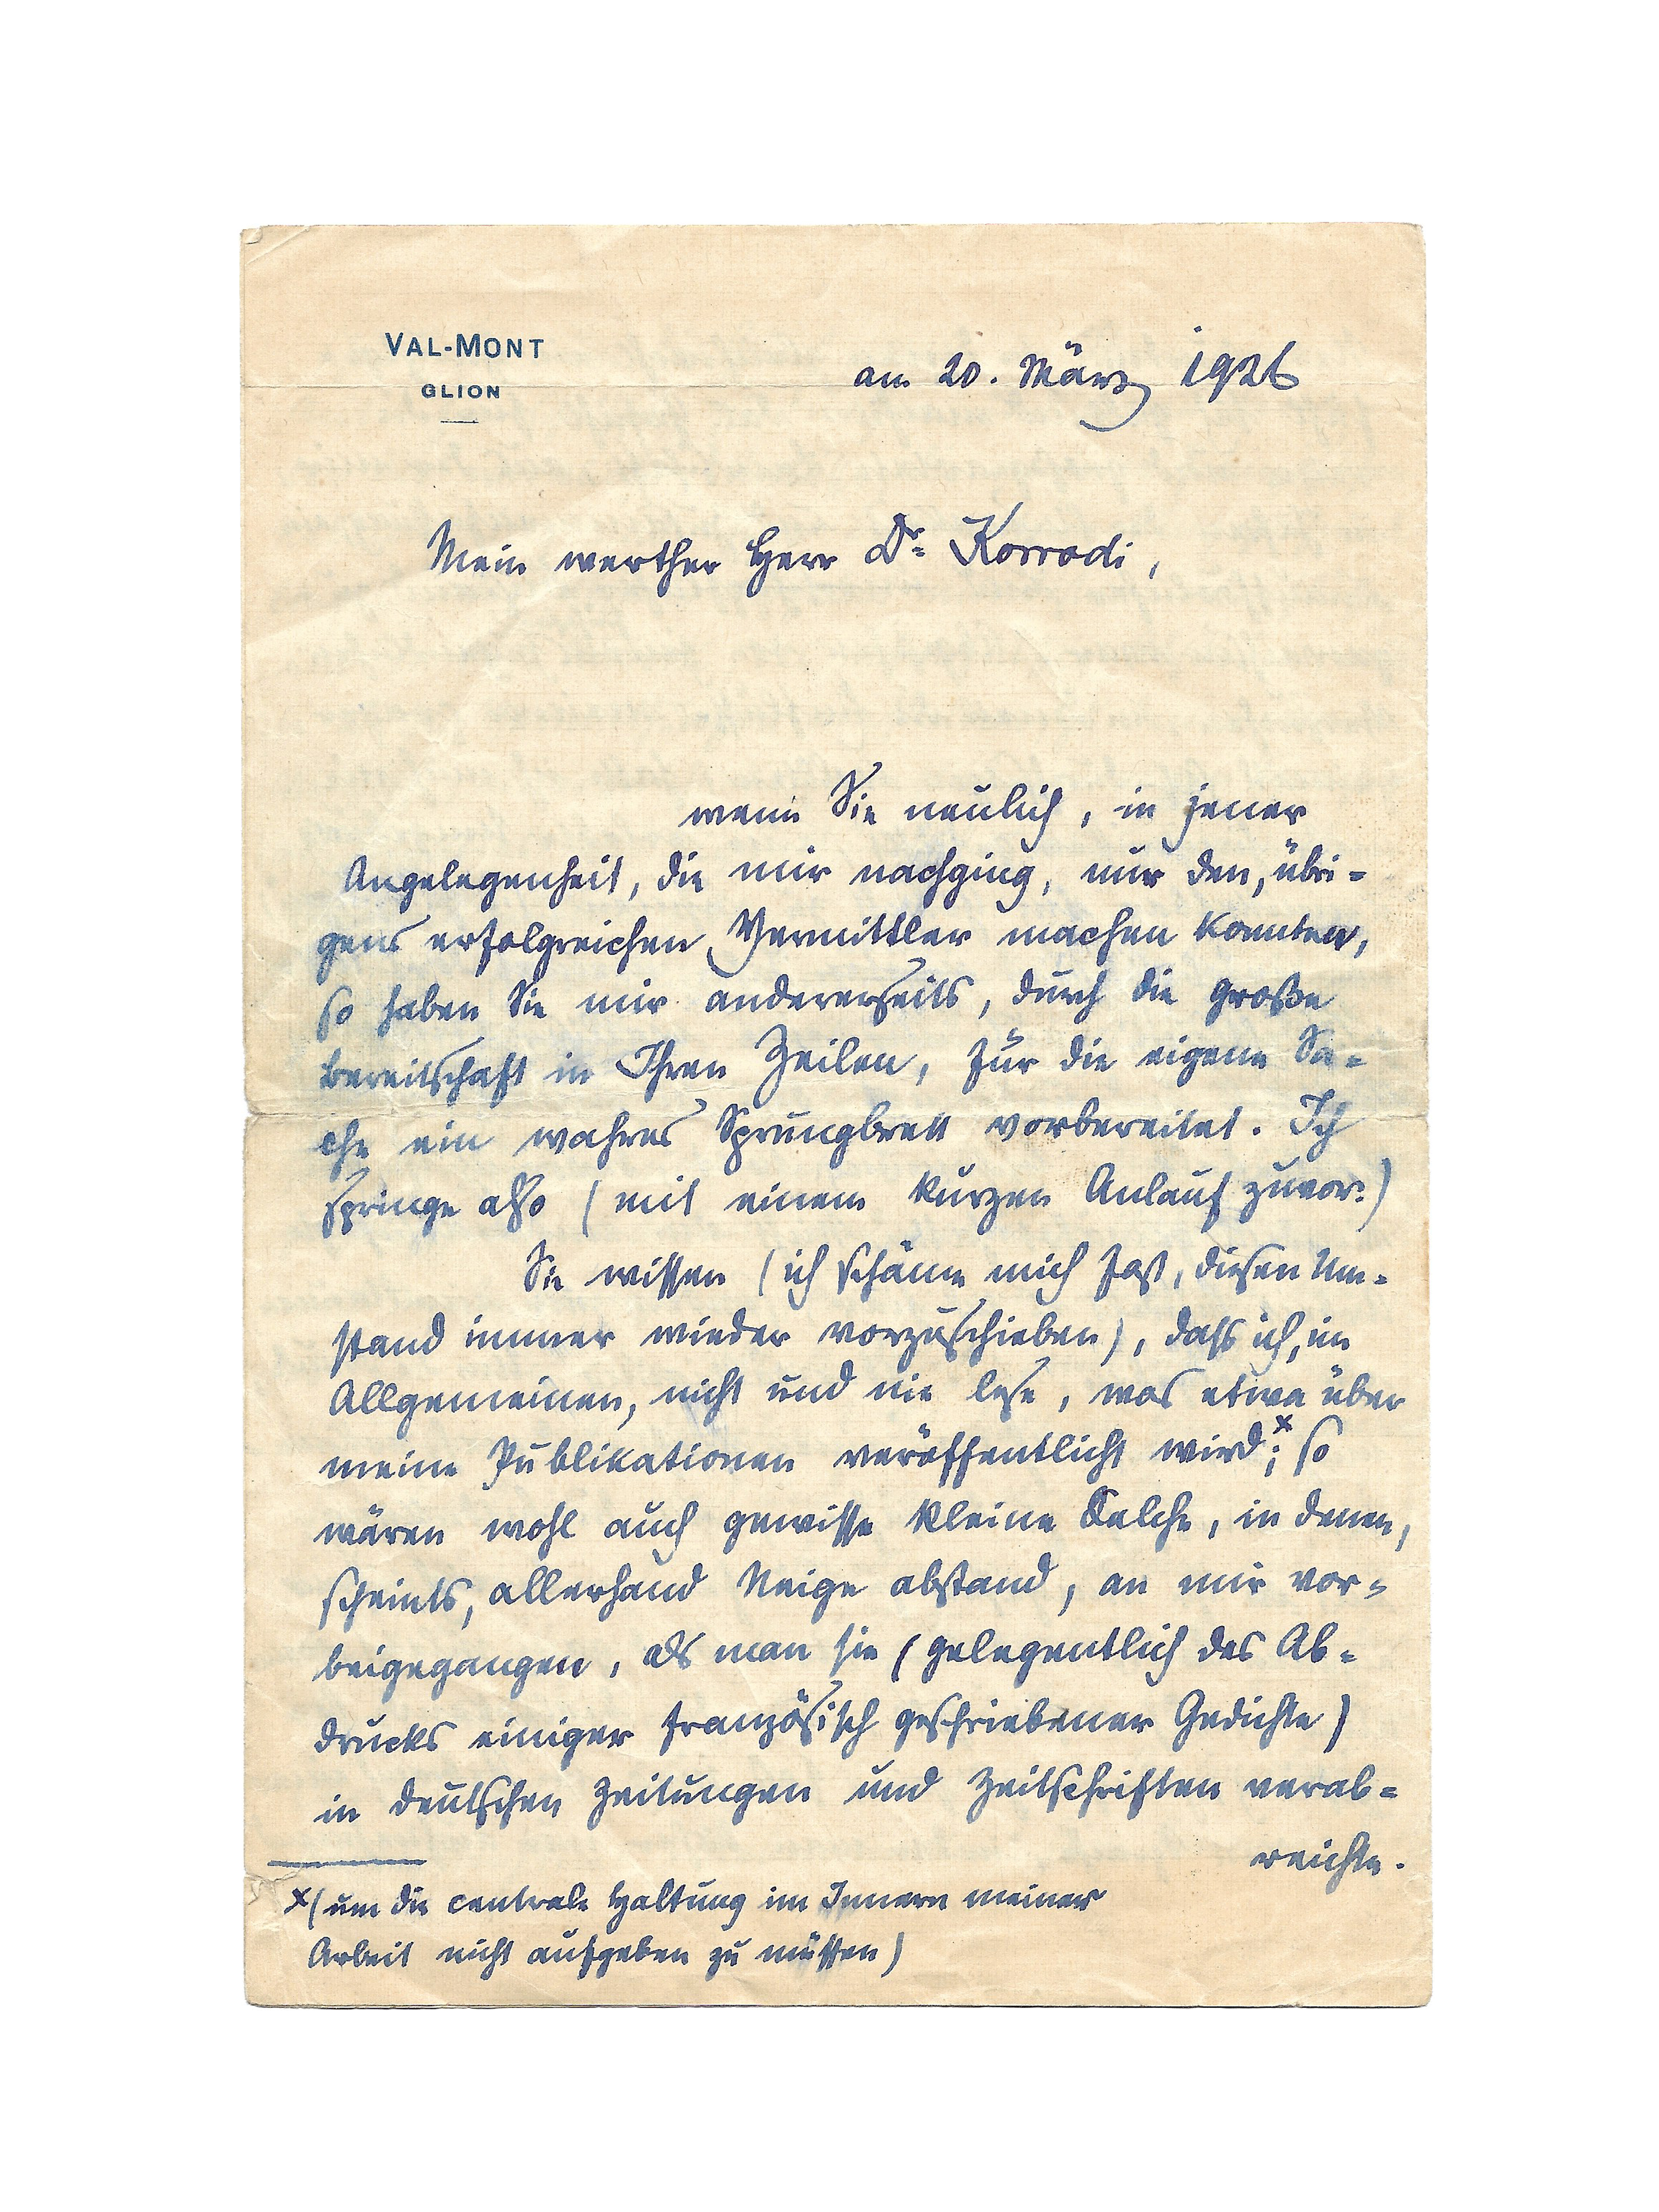 VAL-MONT
GLION
am 20. März 1926
Mein werther Herr Dr. Korrodi,
wenn Sie neulich, in jener
Angelegenheit, die mir nachging, nur den, übri-
gens erfolgreichen, Vermittler machen konnten,
so haben Sie mir andererseits, durch die große
Bereitschaft in Ihren Zeilen, für die eigene Sa-
che ein wahres Sprungbrett vorbereitet. Ich
springe also (mit einem kurzen Anlauf zuvor:)
Sie wissen (ich schäme mich fast, diesen Um-
stand immer wieder vorzuschieben), dass ich, im
Allgemeinen, nicht und nie lese, was etwa über
meine Publikationen veröffentlicht wird x; so
wären wohl auch gewisse kleine Kelche, in denen,
scheints, allerhand Neige abstand, an mir vor-
beigegangen, als man sie (gelegentlich des Ab-
drucks einiger französisch geschriebener Gedichte)
in deutschen Zeitungen und Zeitschriften verab-
reichte.
x (um die centrale Haltung im Innern meiner
Arbeit nicht aufgeben zu müssen)